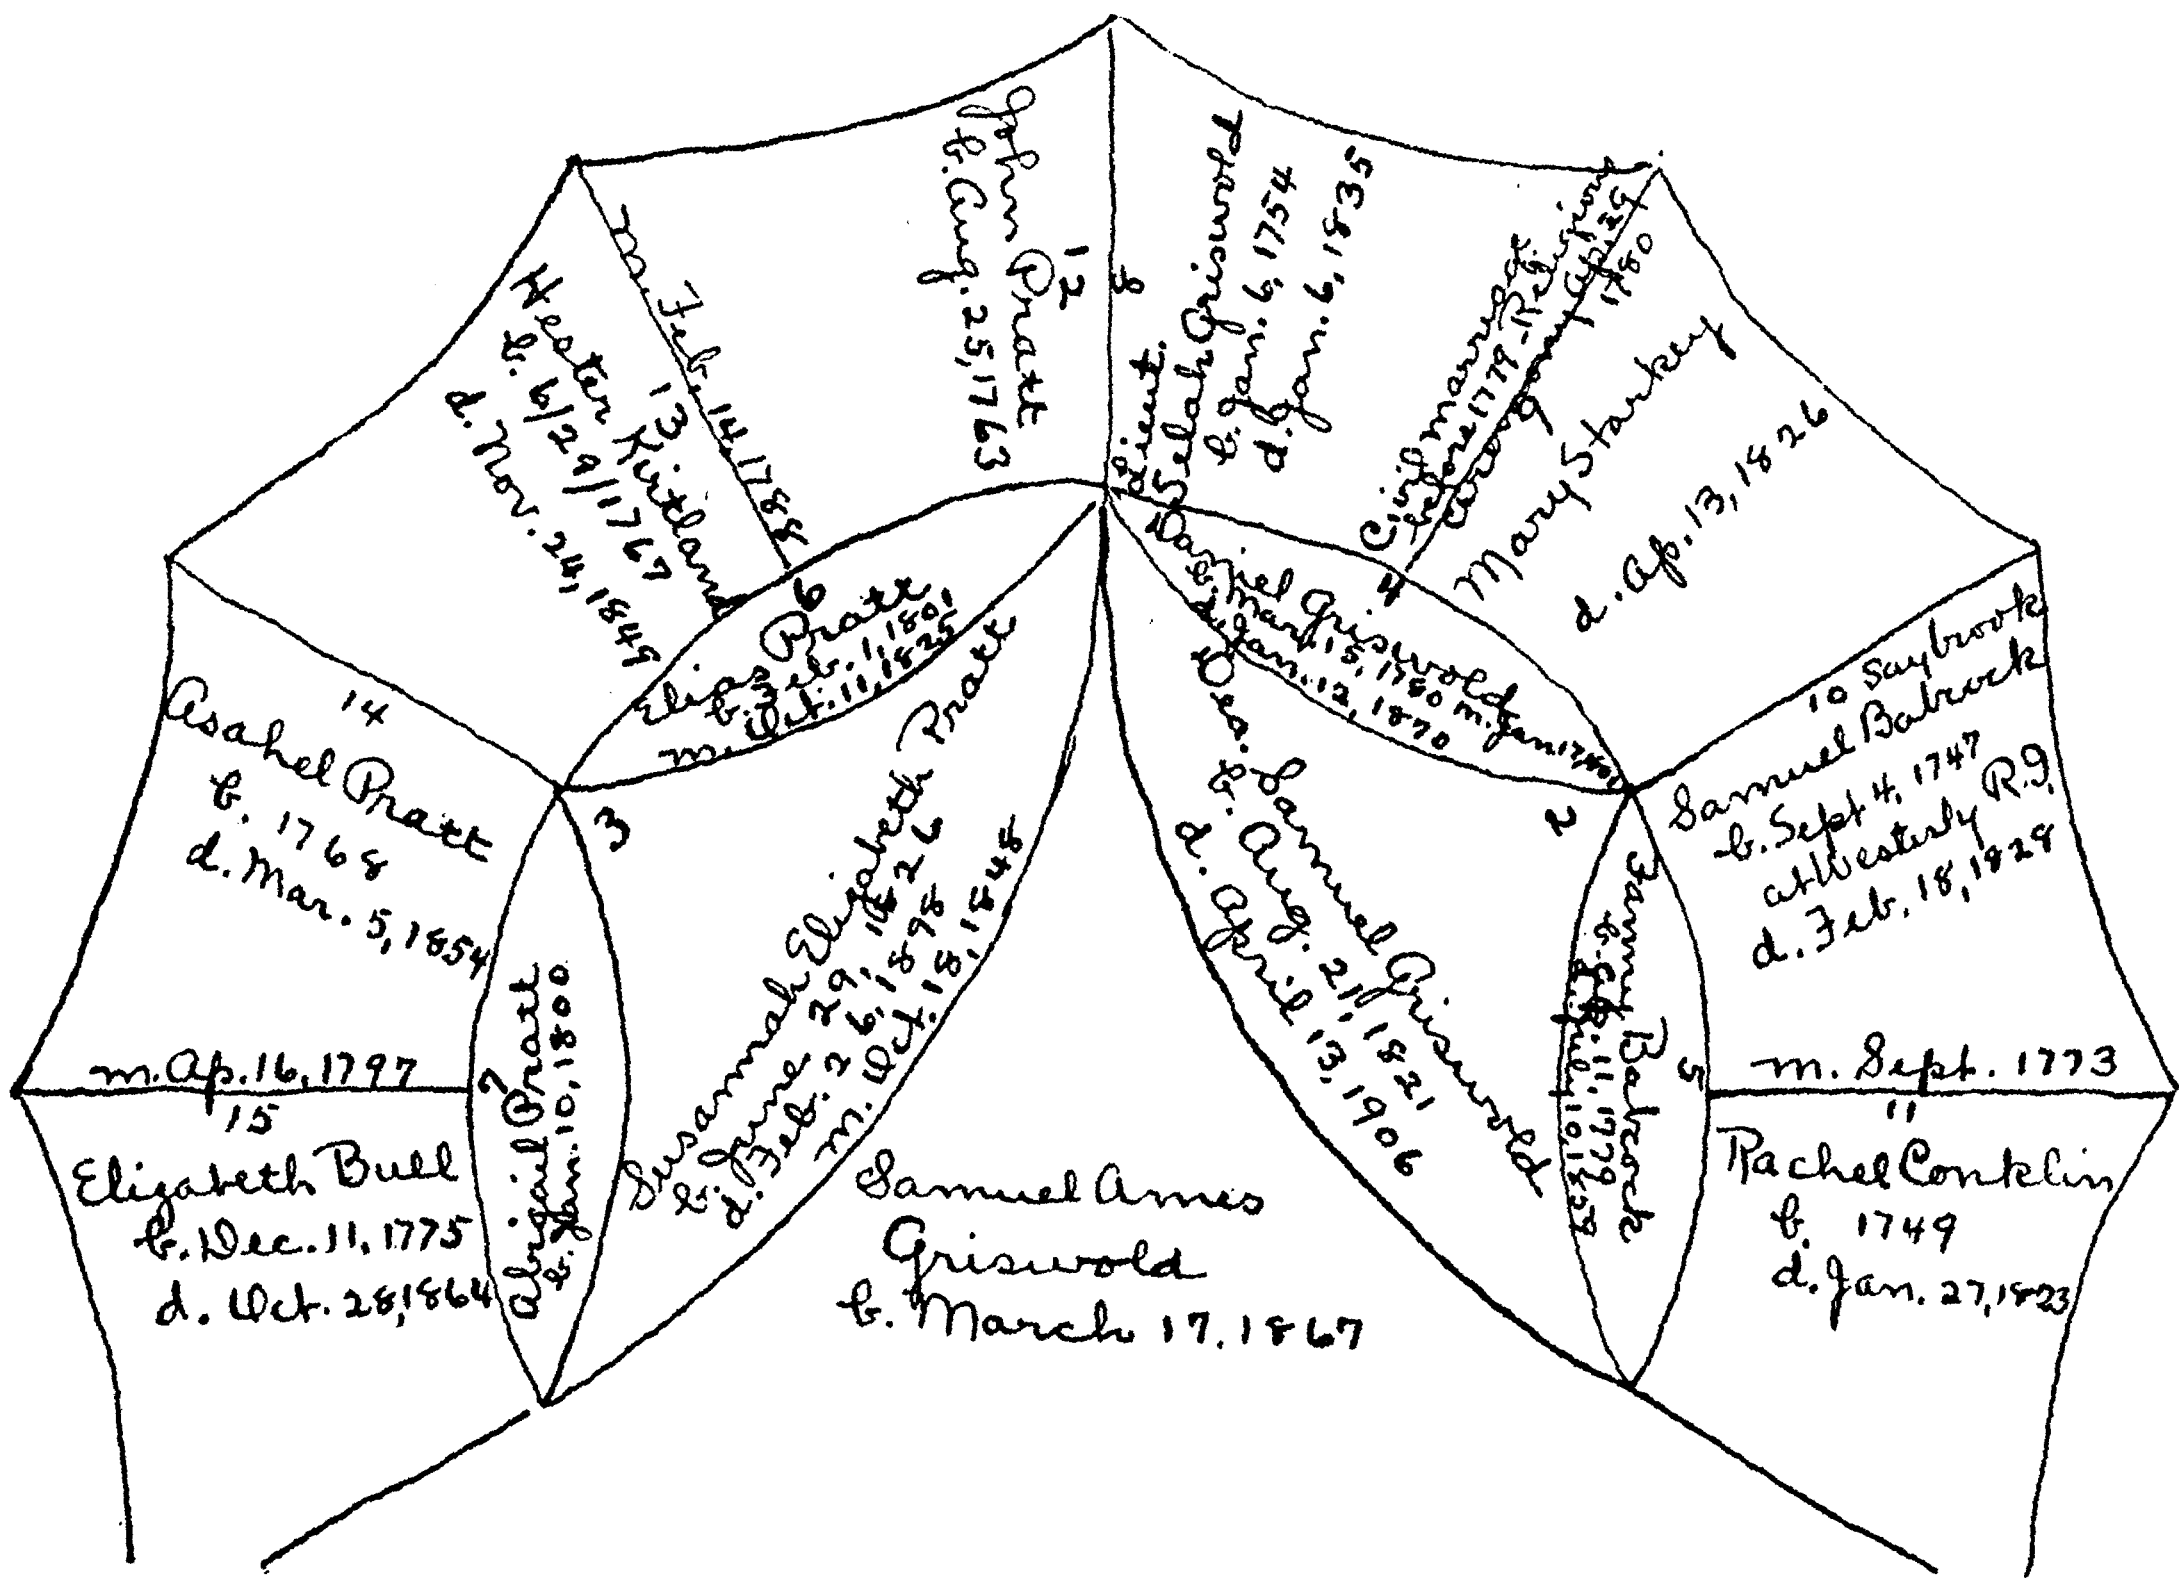 Samuel Ames
Griswold
b. March 17, 1867
2
Dea. Samuel Griswold
b. Aug. 21, 1821
d. April 13, 1906
3
Susannah Elizabeth Pratt
b. June 29, 1826
d. Feb. 26, 1898
m. Oct. 18, 1848
4
Daniel Griswold
b. Mar. 15, 1780 m. Jan 17, 1801
d. Jan. 12, 1870
5
Fanny Babcock
b. Sep. 11, 1779
d. July 10, 1859
6
Elias Pratt
b. Feb. 1, 1801
m. Oct. 11, 1825
7
Abigail Pratt
b. Jan. 10, 1800
8
Lieut.
Selah Griswold
b. Jan. 6, 1754
d. Jan. 6, 1835
Civil marriage
before 1779 - Religious
ceremony Ap. 29
1780
9
Mary Starkey
d. Ap. 13, 1826
10 Saybrook
Samuel Babcock
b. Sept 4, 1747
at Westerly R.I.
d. Feb. 18, 1828
m. Sept. 1773
11
Rachel Conklin
b. 1749
d. Jan. 27, 1823
12
John Pratt
b. Aug. 25, 1763
m. Feb. 14, 1788
13
Hester Kirtland
b. 6/29/1767
d. Nov. 24, 1849
14
Asahel Pratt
b. 1768
d. Mar. 5, 1854
m. Ap. 16, 1797
15
Elizabeth Bull
b. Dec. 11, 1775
d. Oct. 28, 1864